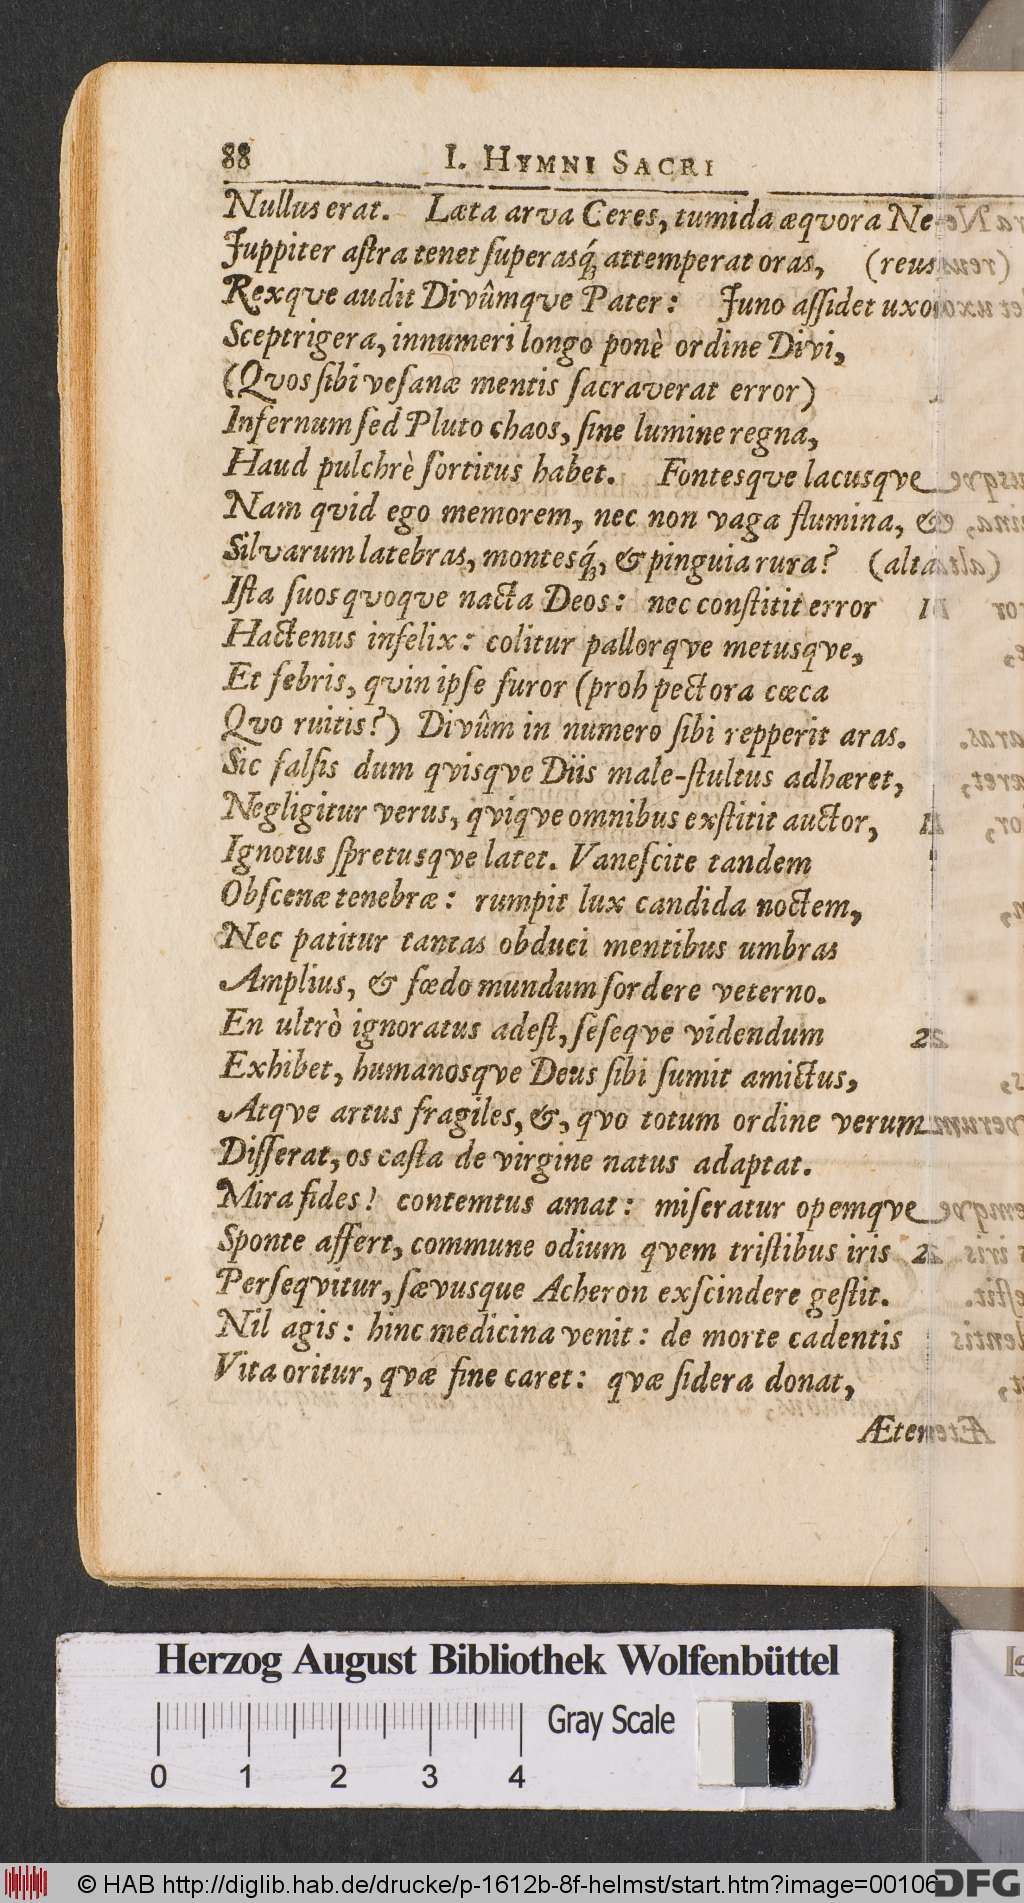 88 I. HYMNI SACRI
Nullus erat. Læta arva Ceres, tumida æqvora Ne-
Juppiter aſtra tenet ſuperasq́; attemperat oras, (reus
Rexqve audit Divûmqve Pater: Juno aſſidet uxo
Sceptrigera, innumeri longo ponè ordine Divi,
(Qvos ſibi veſanæ mentis ſacraverat error)
Infernum ſed Pluto chaos, ſine lumine regna,
Haud pulchrè ſortitus habet. Fontesqve lacusqve
Nam qvid ego memorem, nec non vaga flumina, &
Silvarum latebras, montesq́;, & pinguia rura? (alta
Iſta ſuos qvoqve nacta Deos: nec conſtitit error
Hactenus infelix: colitur pallorqve metusqve,
Et febris, qvin ipſe furor (proh pectora cæca
Qvo ruitis?) Divûm in numero ſibi repperit aras.
Sic falſis dum qvisqve Diis male-ſtultus adhæret,
Negligitur verus, qviqve omnibus exſtitit auctor,
Ignotus ſpretusqve latet. Vaneſcite tandem
Obſcenæ tenebræ: rumpit lux candida noctem,
Nec patitur tantas obduci mentibus umbras
Amplius, & fœdo mundum ſordere veterno.
En ultrò ignoratus adeſt, ſeſeqve videndum
Exhibet, humanosqve Deus ſibi ſumit amictus,
Atqve artus fragiles, &, qvo totum ordine verum
Diſſerat, os caſta de virgine natus adaptat.
Mira fides! contemtus amat: miſeratur opemqve
Sponte affert, commune odium qvem triſtibus iris
Perſeqvitur, ſævusque Acheron exſcindere geſtit.
Nil agis: hinc medicina venit: de morte cadentis
Vita oritur, qvæ fine caret: qvæ ſidera donat,
Ætern
Herzog August Bibliothek Wolfenbüttel
Gray Scale
0 1 2 3 4
© HAB http://diglib.hab.de/drucke/p-1612b-8f-helmst/start.htm?image=00106
DFG